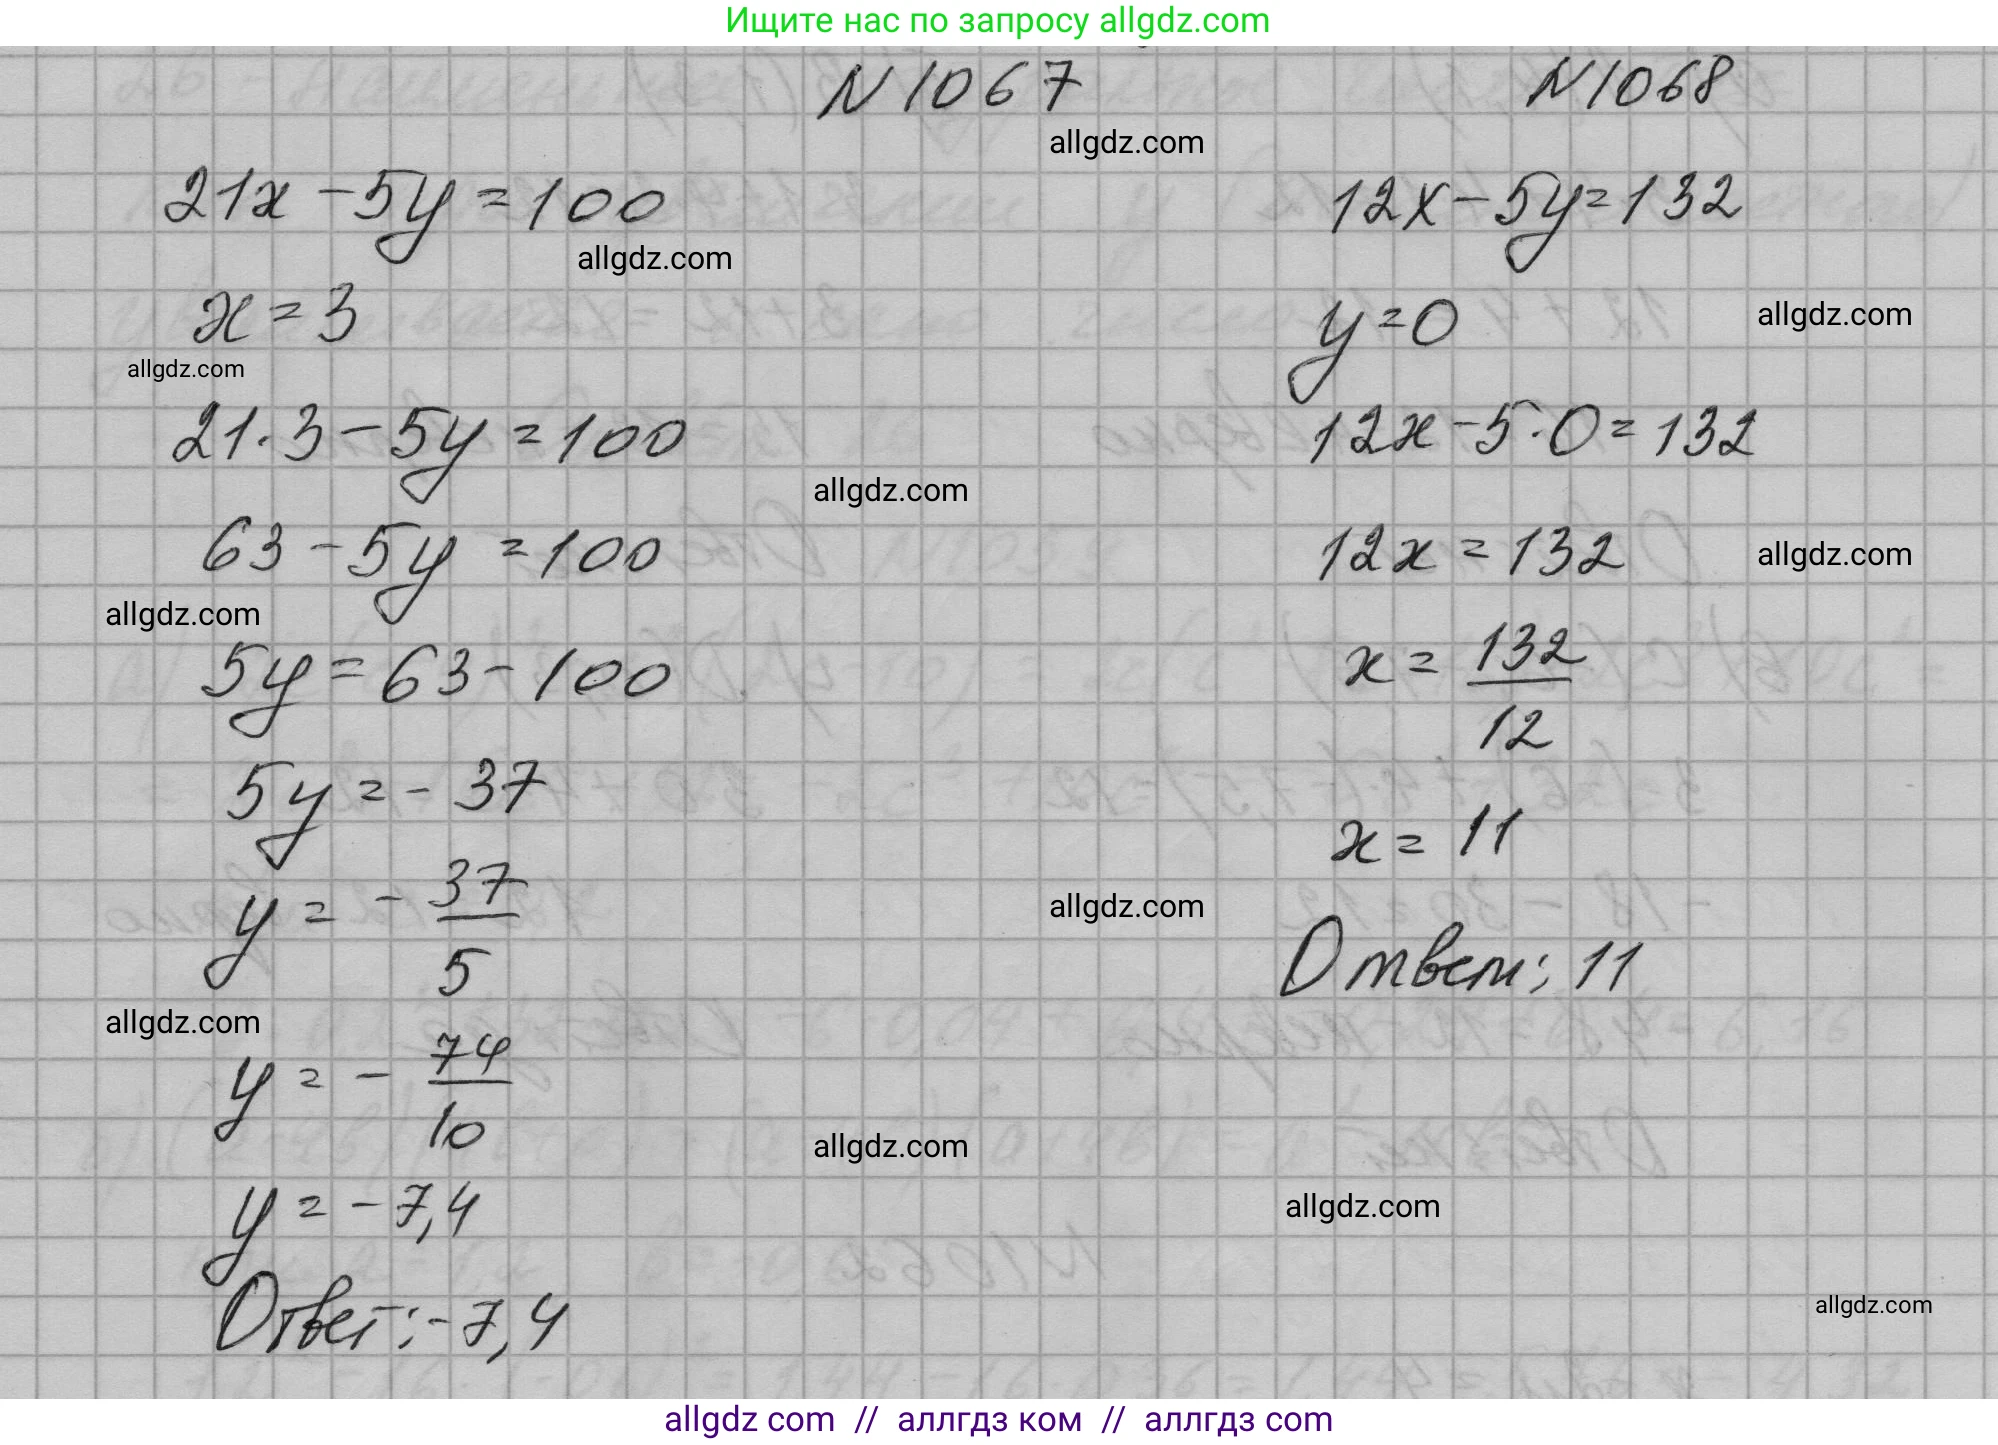 Ищите нас по запросу allgdz.com
N 1067
allgdz.com
21x - 5y = 100
allgdz.com
x = 3
allgdz.com
21 · 3 - 5y = 100
allgdz.com
63 - 5y = 100
allgdz.com
5y = 63 - 100
5y = - 37
y = - 37/5
allgdz.com
allgdz.com
y = - 74/10
allgdz.com
y = - 7,4
Ответ: - 7,4
N 1068
12x - 5y = 132
y = 0
allgdz.com
12x - 5 · 0 = 132
12x = 132
allgdz.com
x = 132/12
x = 11
Ответ: 11
allgdz.com
allgdz.com
allgdz com // аллгдз ком // аллгдз com